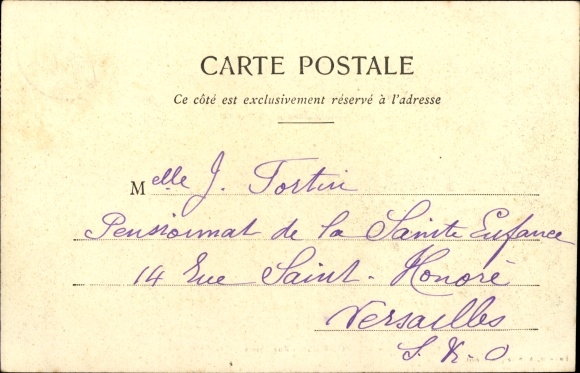 CARTE POSTALE
Ce côté est exclusivement réservé à l'adresse
Melle J. Tortin
Pensionnat de la Sainte Enfance
14 Rue Saint-Honoré
Versailles
S. & O